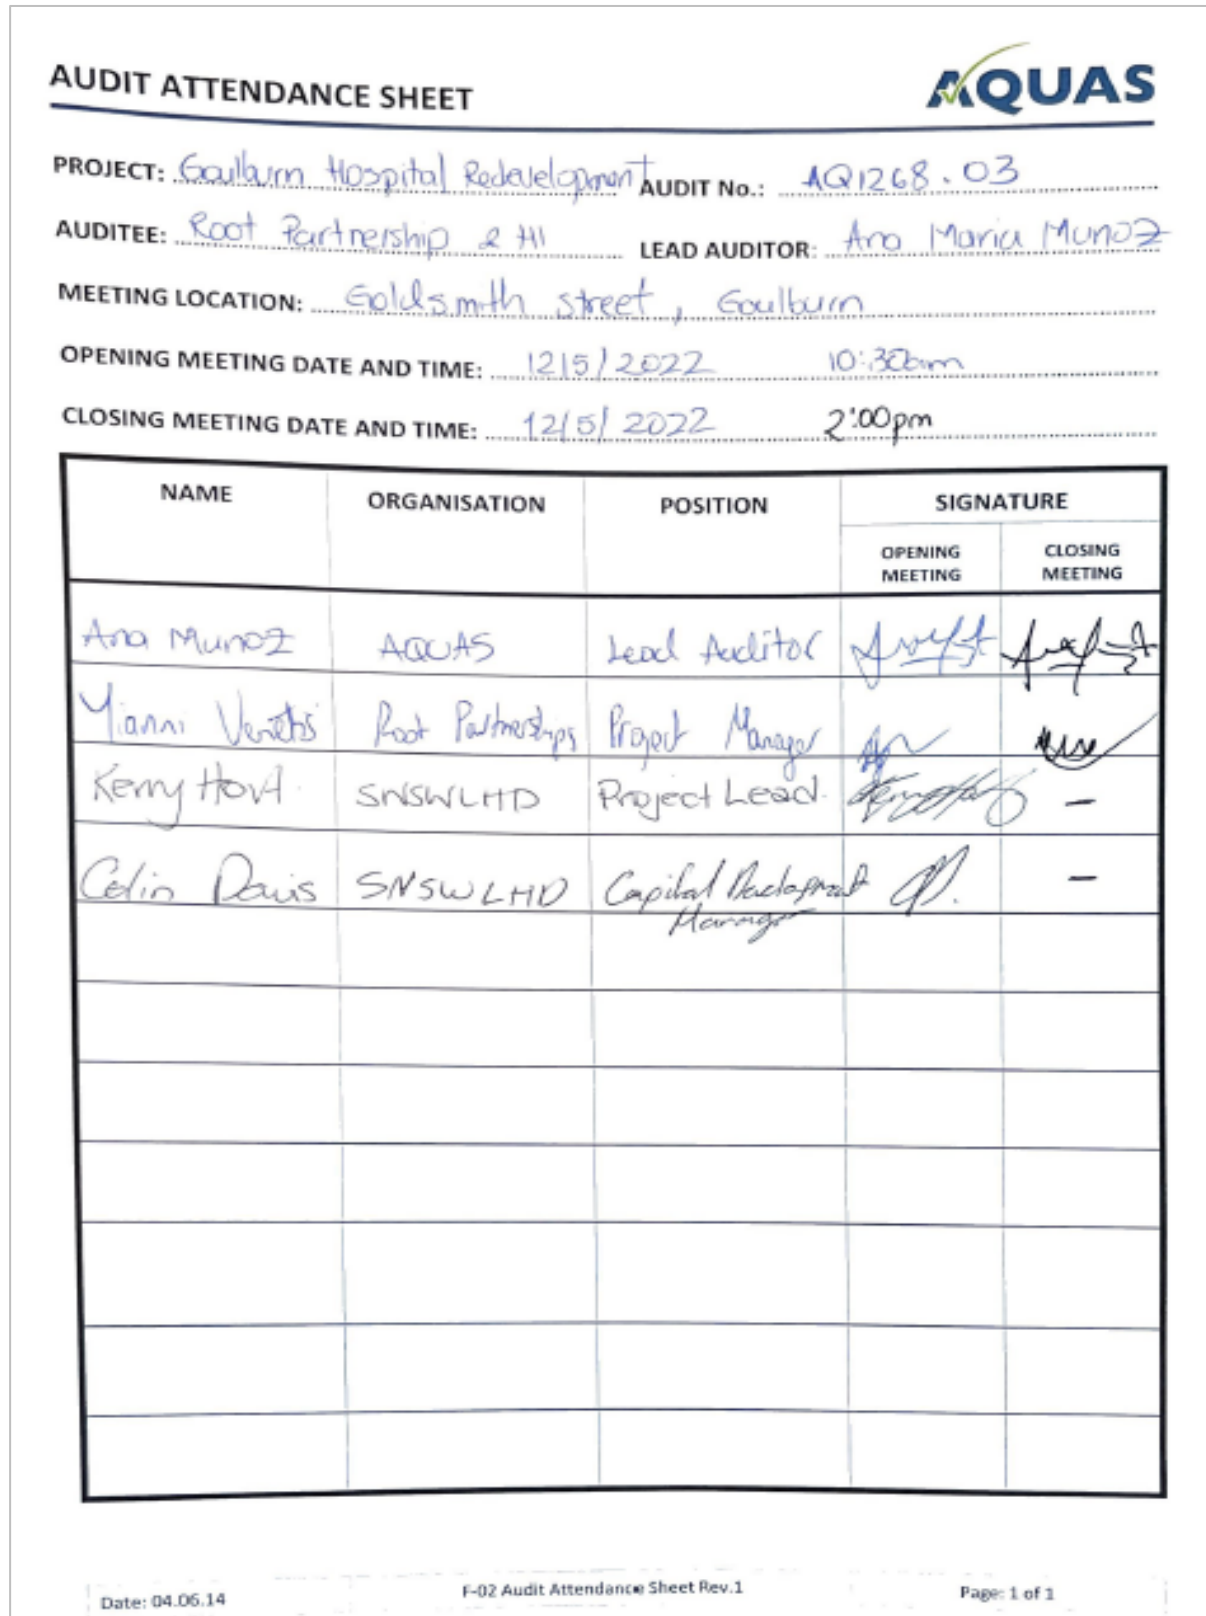 AUDIT ATTENDANCE SHEET
AQUAS
PROJECT: Goulburn Hospital Redevelopment AUDIT No.: AQ1268.03
AUDITEE: Root Partnership & HI LEAD AUDITOR: Ana Maria Munoz
MEETING LOCATION: Goldsmith street, Goulburn
OPENING MEETING DATE AND TIME: 12/5/2022 10:30am
CLOSING MEETING DATE AND TIME: 12/5/2022 2:00pm
NAME ORGANISATION POSITION SIGNATURE
OPENING MEETING CLOSING MEETING
Ana Munoz AQUAS Lead Auditor
Yianni Root Partnerships Project Manager
Kerry SNSWLHD Project Lead. -
Colin Davis SNSWLHD Capital Development -
Manager
Date: 04.06.14 F-02 Audit Attendance Sheet Rev.1 Page: 1 of 1